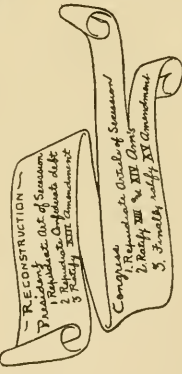 — RECONSTRUCTION —
President
1 Repudiate Act of Secession
2 Repudiate Confederate debt
3 Ratify XIII Amendment
Congress
1. Repudiate Article of Secession
2. Ratify XIII & XIV Am's
3. Finally ratify XV Amendment